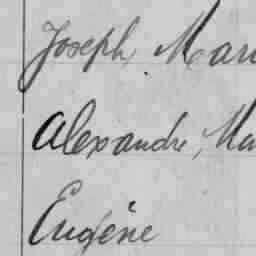 Joseph, Mari
Alexandre, Ma
Eugène